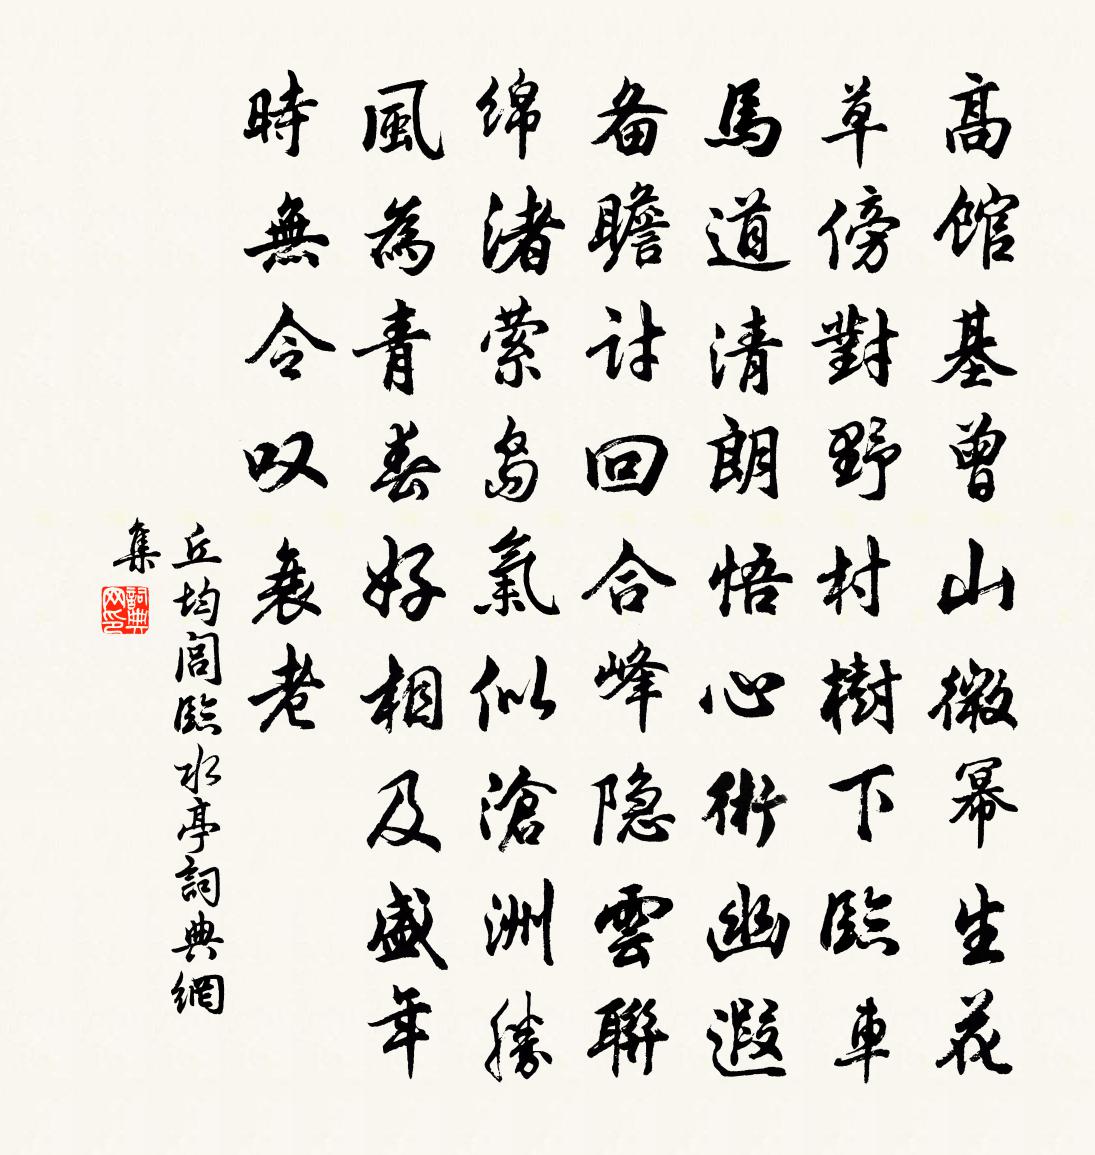 高馆基曾山微幂生花
草傍對野村樹下臨車
馬道清朗悟心術幽遐
备瞻討回合峰隐雲聯
綿渚萦岛氣似滄洲勝
風為青春好相及盛年
時無令叹衰老
丘均閣臨水亭詞典網
集
詞典网印